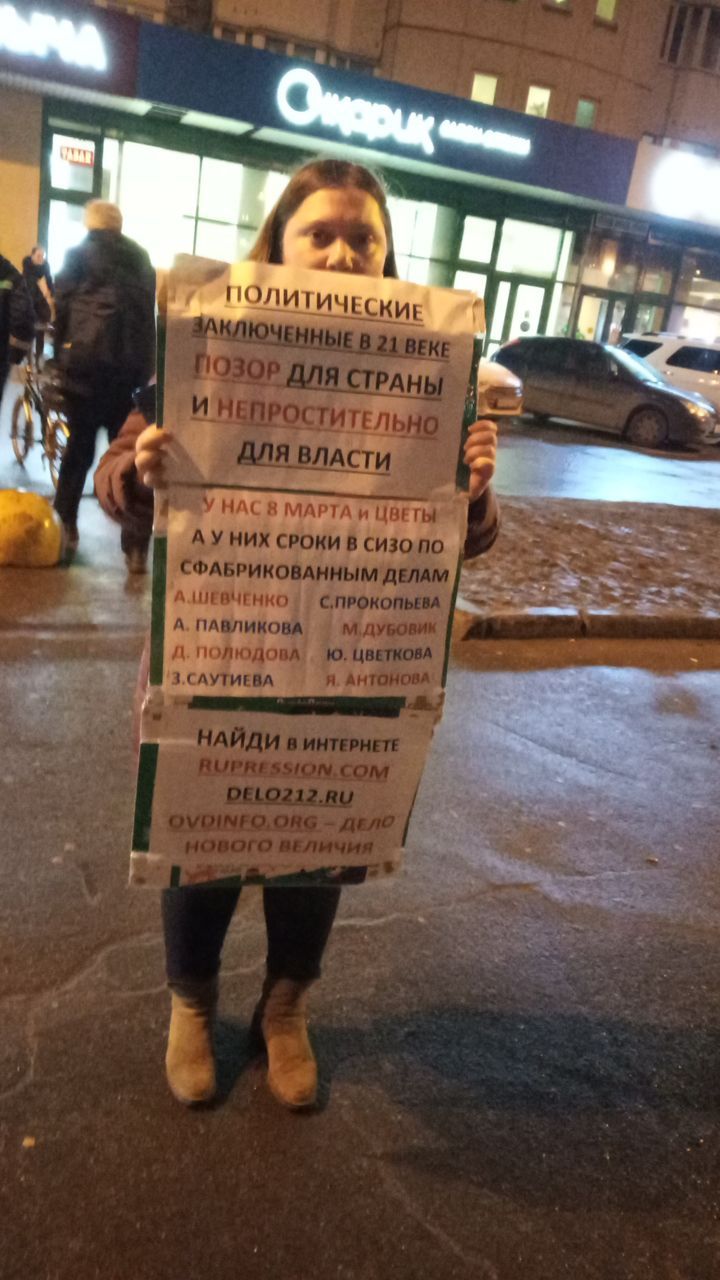 Очкарик
ПОЛИТИЧЕСКИЕ
ЗАКЛЮЧЕННЫЕ В 21 ВЕКЕ
ПОЗОР ДЛЯ СТРАНЫ
И НЕПРОСТИТЕЛЬНО
ДЛЯ ВЛАСТИ
У НАС 8 МАРТА и ЦВЕТЫ
А У НИХ СРОКИ В СИЗО ПО
СФАБРИКОВАННЫМ ДЕЛАМ
А.ШЕВЧЕНКО С.ПРОКОПЬЕВА
А. ПАВЛИКОВА М.ДУБОВИК
Д. ПОЛЮДОВА Ю. ЦВЕТКОВА
З.САУТИЕВА Я. АНТОНОВА
НАЙДИ В ИНТЕРНЕТЕ
RUPRESSION.COM
DELO212.RU
OVDINFO.ORG – ДЕЛО
НОВОГО ВЕЛИЧИЯ